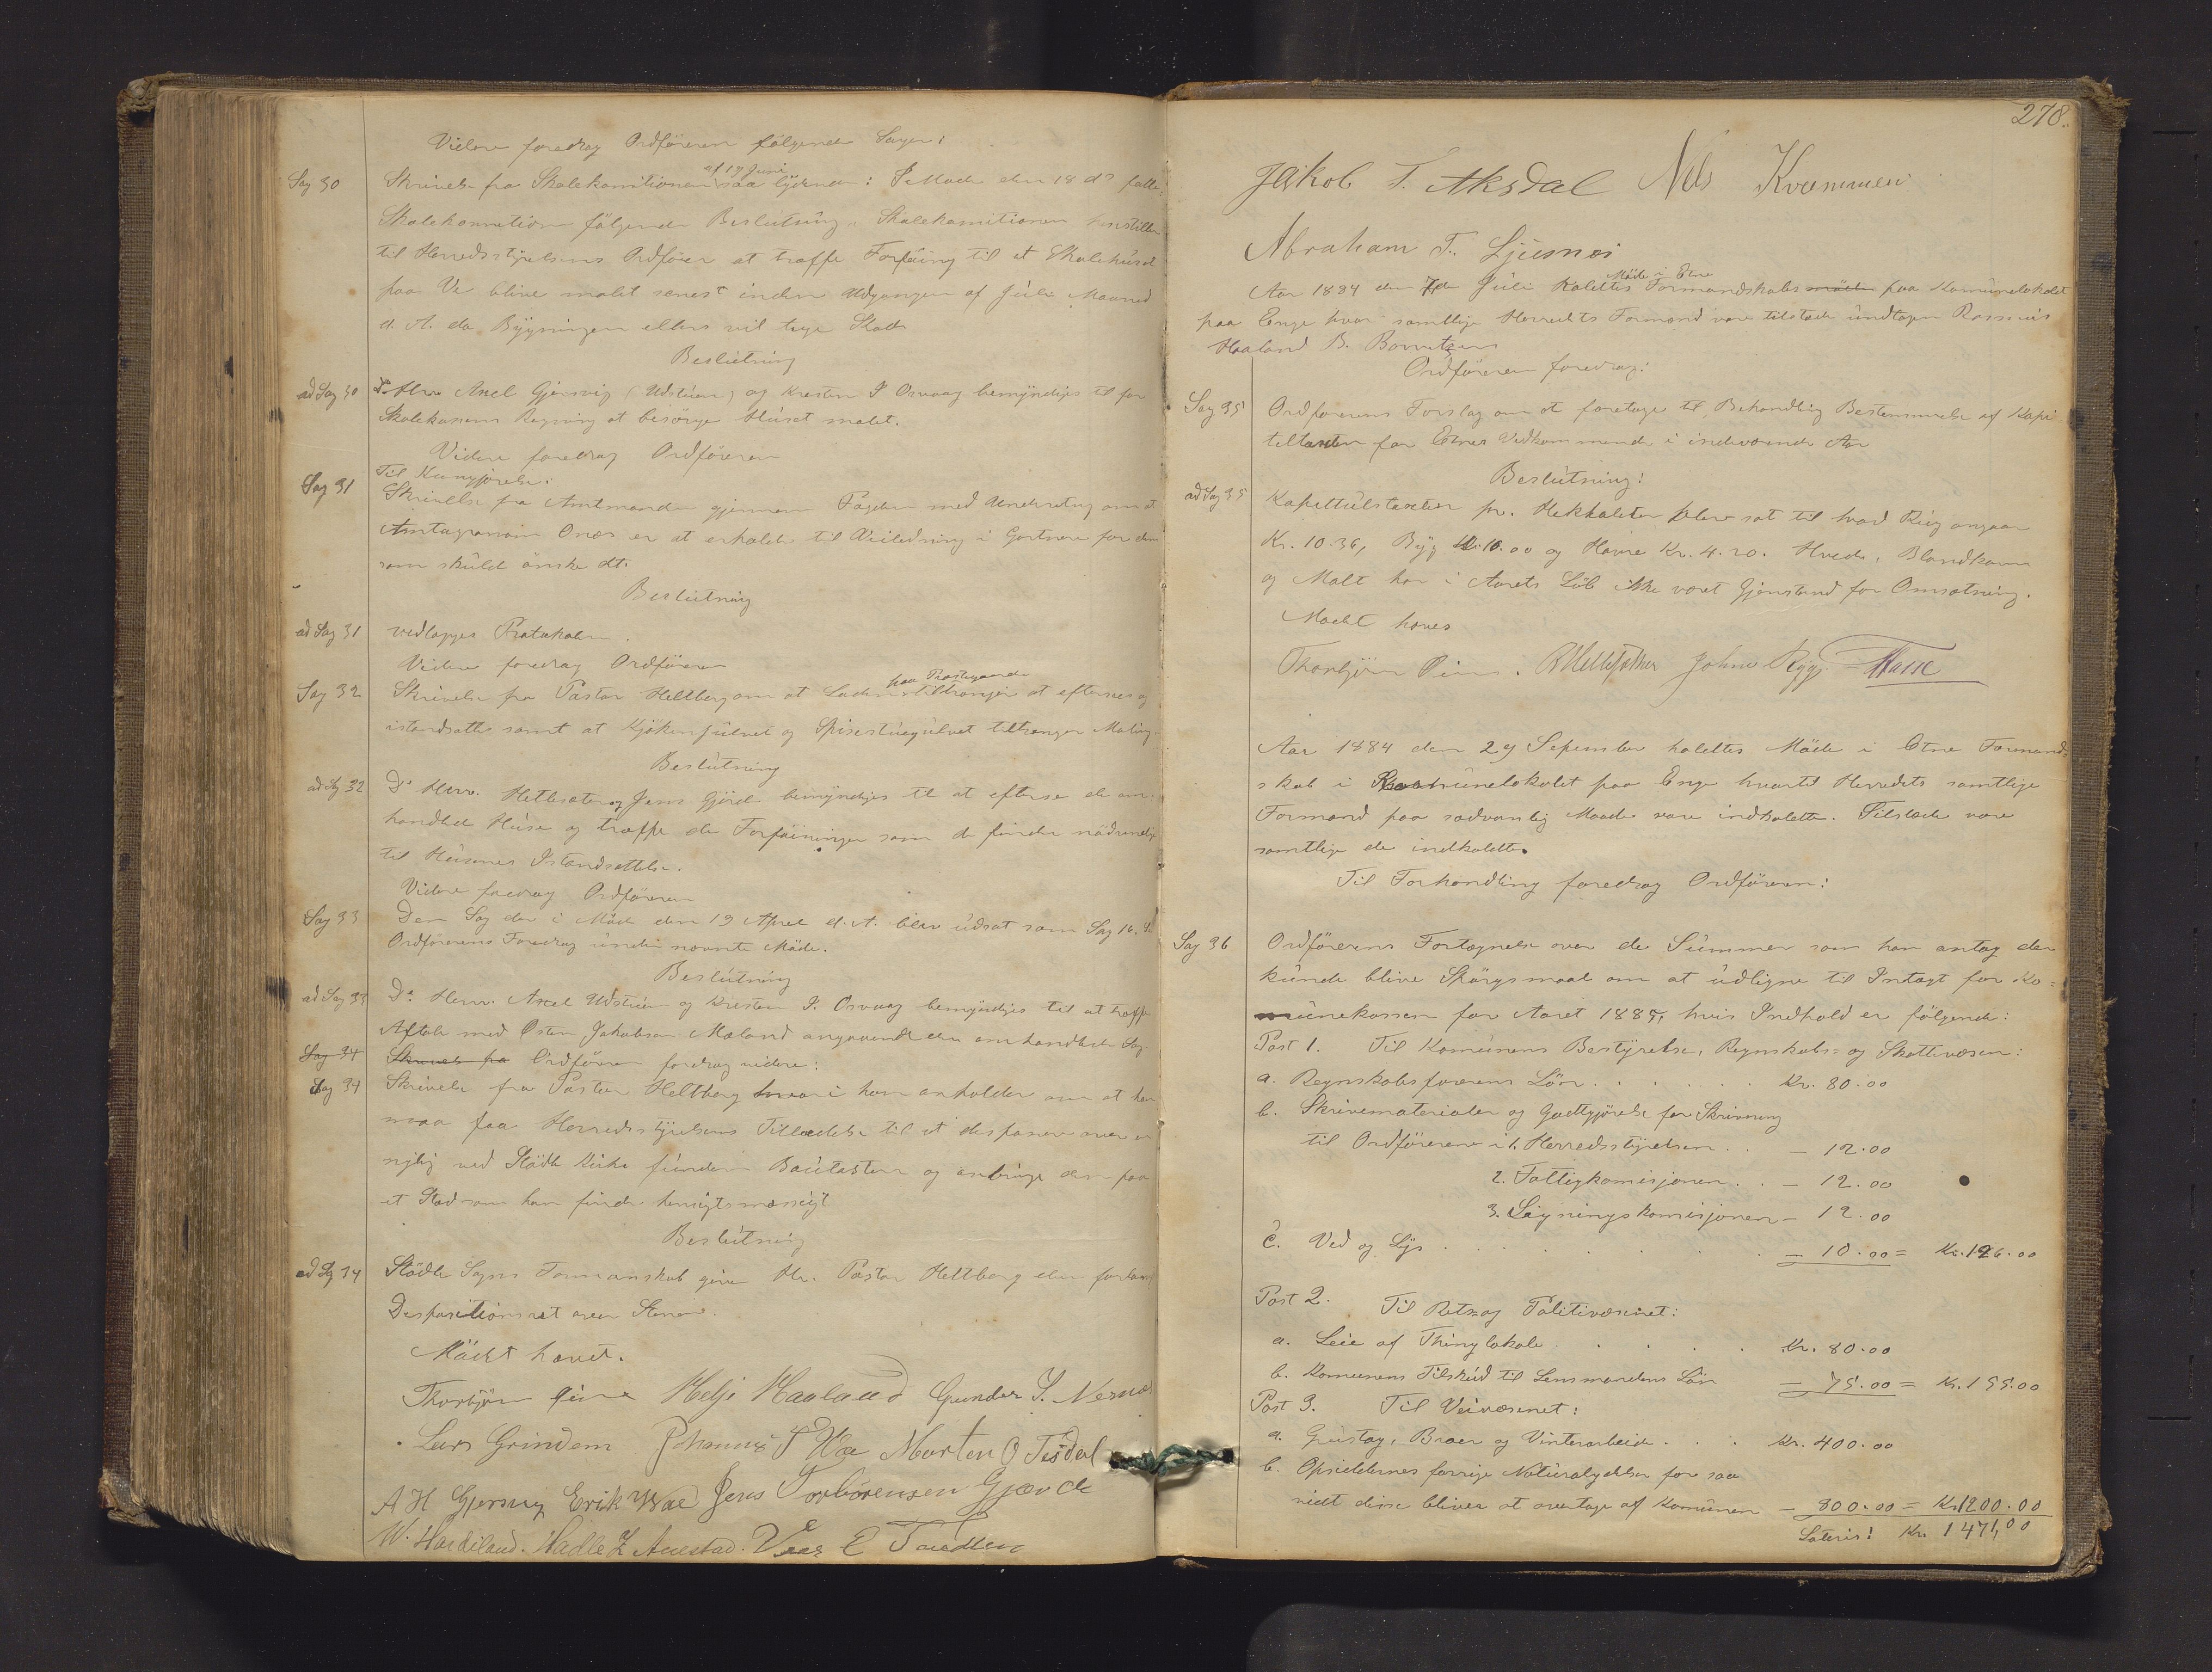 Videre foredrog Ordföreren fölgende Sager:
af 19 Juni
Sag 30 Skrivelse fra Skolekomitionen saa lydende: I Möde den 18 ds
Skolekomition fölgende Beslutning. Skolekomitionen henstiller
til Herredsstyrelsens Ordförer at træffe Forföining til at Skolehuset
paa Ve blive malet senest inden Udgangen af Juli Maaned
d. A. da Bygningen ellers vil tage Skade
Beslutning
ad Sag 30 Axel Gjersvig (Udstuen) og Kresten I Osvaag bemyndiges til for
Skolekassens Regning at besörge Huset malet.
Videre foredrog Ordföreren
Til Kungjörelse:
Sag 31 Skrivelse fra Amtmanden gjennem Fogden med Underretning om at
Amtagronom Onæs er at erholde til Veiledning i Gartneri for dem
som skulde önske dt.
Beslutning
ad Sag 31 vedlægges Protokolen.
Videre foredrog Ordföreren
paa Præstegaarden
Sag 32 Skrivelse fra Pastor Heltberg om at Laden tiltrænger at efterses og
istandsættes samt at Kjökengulvet og Spisestuegulvet tiltrænger Maling.
Beslutning
ad Sag 32 D'Hrr. Hetlesæter og Jens Gjerde bemyndiges til at efterse de om-
handlede Huse og træffe de Forföininger som de finder nödvendige
til Husenes Istandsættelse.
Videre foredrog Ordföreren
Sag 33 Den Sag der i Möde den 19 April d. A. blev udsat som Sag 16,
Ordförerens Foredrag under nævnte Möde.
Beslutning
ad Sag 33 D'Herr. Axel Udstuen og Kresten I. Osvaag bemyndiges til at træffe
Aftale med Osten Jakobsen Mæland angaaende den omhandlede Sag.
Sag 34 Skrivelse fra Ordföreren foredrog videre:
Sag 34 Skrivelse fra Pastor Heltberg hvori han anholder om at han
maa faa Herredsstyrelsens Tilladelse til at disponere over en
nylig ved Stödle Kirke funden Bautasten og anbringe den paa
et Sted som han finder hensigtsmæssigt
Beslutning
ad Sag 34 Stödle Sogns Formanskab giver Hr. Pastor Heltberg den forlangte
Dispositionsret over Stenen.
Mödet hævet.
Thorbjörn Helje Haaland Gunder I.
Lars Grindem Johannes Væ Morten O Tesdal
A H Gjersvig Erik Væ Jens Torborensen Gjærde
W. Hardeland. Hadle Z Auestad.
278.
Jakob T. Aksdal Nels Kvammen
Abraham T. Ljusnæs
Möde i Etne
Aar 1884 den 7de Juli holdtes Formandskabs möde paa Komunelokalet
paa Enge hvor samtlige Herredets Formænd vare tilstæde undtagen Rasmus
Haaland
Ordföreren foredrog:
Sag 35 Ordförerens Forslag om at foretage til Behandling Bestemmelse af Kapi
teltaxten for Etnes Vedkommende i indeværende Aar
Beslutning!
ad Sag 35 Kapittelstaxten pr. Hektoliter blev sat til hvad Rug angaar
Kr. 10.36, Byg Kr. 10.00 og Havre Kr. 4.20. Hvede, Blandkorn
og Malt har i Aarets Löb ikke været Gjenstand for Omsætning.
Mödet hæves
Thorbjörn BHetlesæther Johne Rygg
Aar 1884 den 29 September holdtes Möde i Etne Formand-
skab i Komunelokalet paa Enge hvortil Herredets samtlige
Formænd paa sædvanlig Maade vare indkaldte. Tilstæde vare
samtlige de indkaldte.
Til Forhandling foredrog Ordföreren:
Sag 36 Ordförerens Fortegnelse over de Summer som han antog der
kunde blive Spörgsmaal om at udligne til Indtægt for Ko=
munekassen for Aaret 1885, hvis Indhold er fölgende:
Post 1. Til Komunens Bestyrelse, Regnskabs- og Skattevæsen:
a. Regnskabsförerens Lön . . . . . Kr. 80.00
b. Skrivematerialer og Godtgjörelse for Skrivning
til Ordföreren i 1. Herredsstyrelsen . . — 12.00
2. Fattigkomisjonen . . — 12.00
3. Ligningskomisjonen — 12.00
c. Ved og Lys . . . . . — 10.00 = Kr. 126.00
Post 2. Til Rets- og Politivæsenet:
a. Leie af Thinglokale . . . . Kr. 80.00
b. Komunens Tilskud til Lensmandens Lön — 75.00 = Kr. 155.00
Post 3. Til Veivæsenet:
a. Grustag, Broer og Vinterarbeide . . . Kr. 400.00
b. Opsiddernes forrige Naturalydelser for saa
vidt disse bliver at overtage af Komunen — 800.00 = Kr. 1200.00
Lateris! Kr. 1471,00